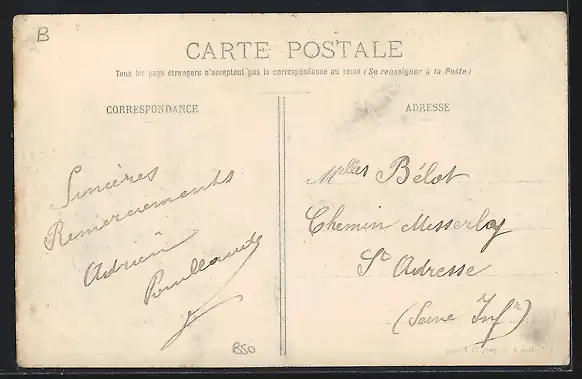 B
CARTE POSTALE
Tous les pays étrangers n'acceptent pas la correspondance au recto (Se renseigner à la Poste)
CORRESPONDANCE
ADRESSE
Sincères
Remerciements
Adrien
Melles Bélot
Chemin Messerloy
Ste Adresse
(Seine Infre)
B50